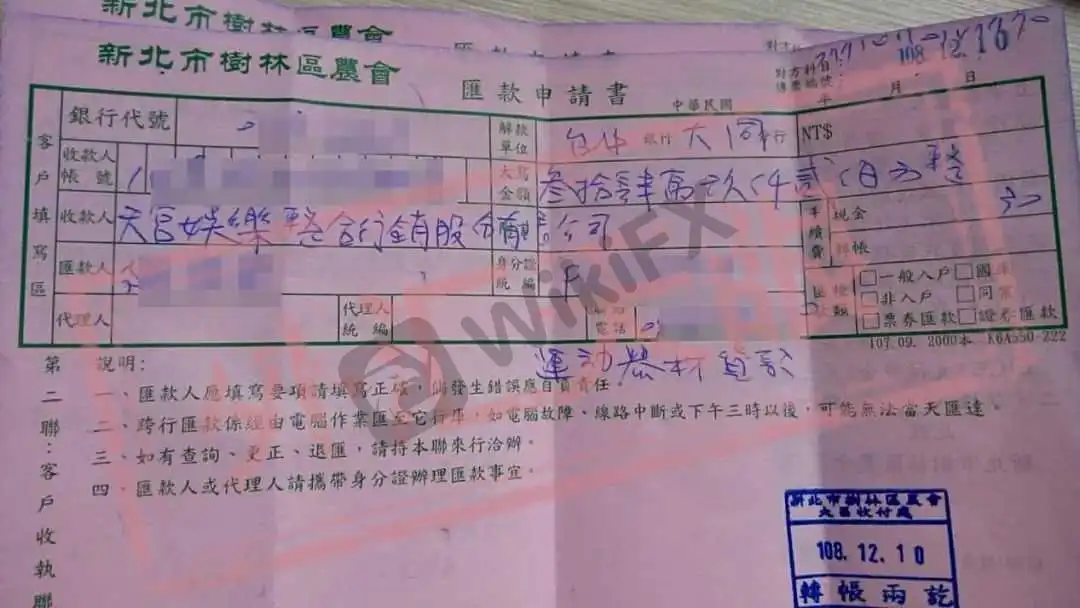 新北市樹林區農會
新北市樹林區農會 匯款申請書 中華民國 年 月 日
對方科目:
傳票編號:
108.12.10
客戶填寫區
銀行代號 解款單位 銀行 大同 行 NT$
收款人帳號 大寫金額 叁拾肆萬玖仟貳佰元整
收款人 天宮娛樂整合行銷股份有限公司 手續費 現金 30
轉帳
匯款人 身分證統編 F 匯款種類 一般入戶 國庫
非入戶 同業
代理人 代理人統編 聯絡電話 票券匯款 證券匯款
107.09. 2000本 K6A550-222
運动器材貨款
第二聯:客戶收執聯
說明:
一、匯款人應填寫要項請填寫正確,倘發生錯誤應自負責任。
二、跨行匯款係經由電腦作業匯至它行庫,如電腦故障、線路中斷或下午三時以後,可能無法當天匯達。
三、如有查詢、更正、退匯,請持本聯來行洽辦。
四、匯款人或代理人請攜帶身分證辦理匯款事宜。
新北市樹林區農會
收付處
108.12.10
轉帳兩訖
WikiFX